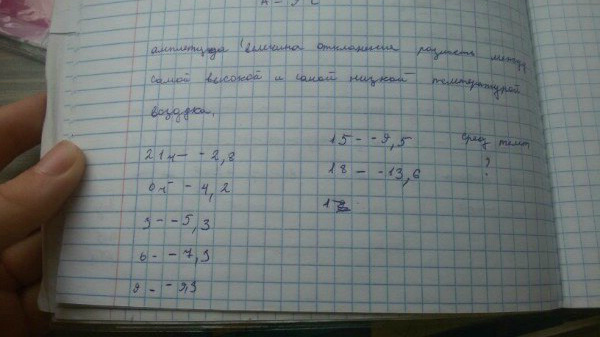 амплетуда величина отклонения разность между
самой высокой и самой низкой температурой
воздуха.
21ч - -2,8
0ч - 4,2
3 - -5,3
6 - -7,3
9 - -9,3
15 - -9,5
18 - -13,6
сред темп
?